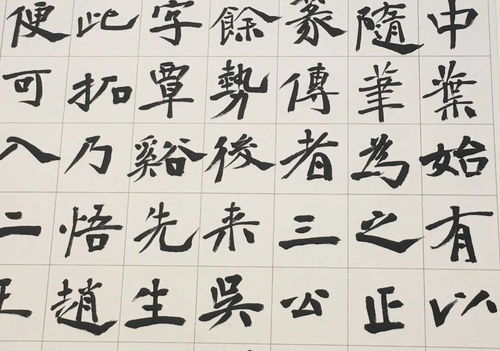 中葉始有以
隨筆為之正
篆傳者三公
餘勢後来吳
字覃谿先生
此拓乃悟趙
便可入二王